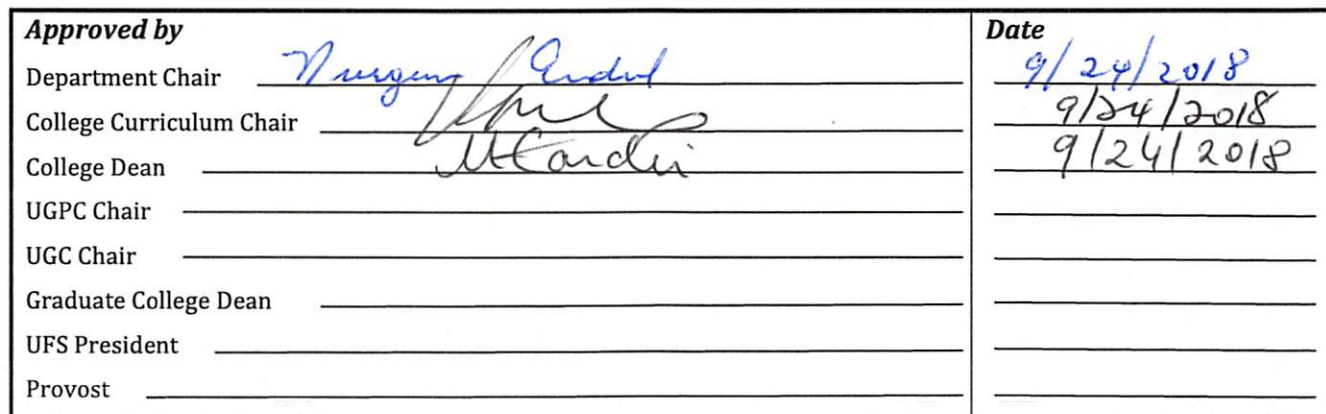 Approved by Date
Department Chair 9/24/2018
College Curriculum Chair 9/24/2018
College Dean 9/24/2018
UGPC Chair
UGC Chair
Graduate College Dean
UFS President
Provost